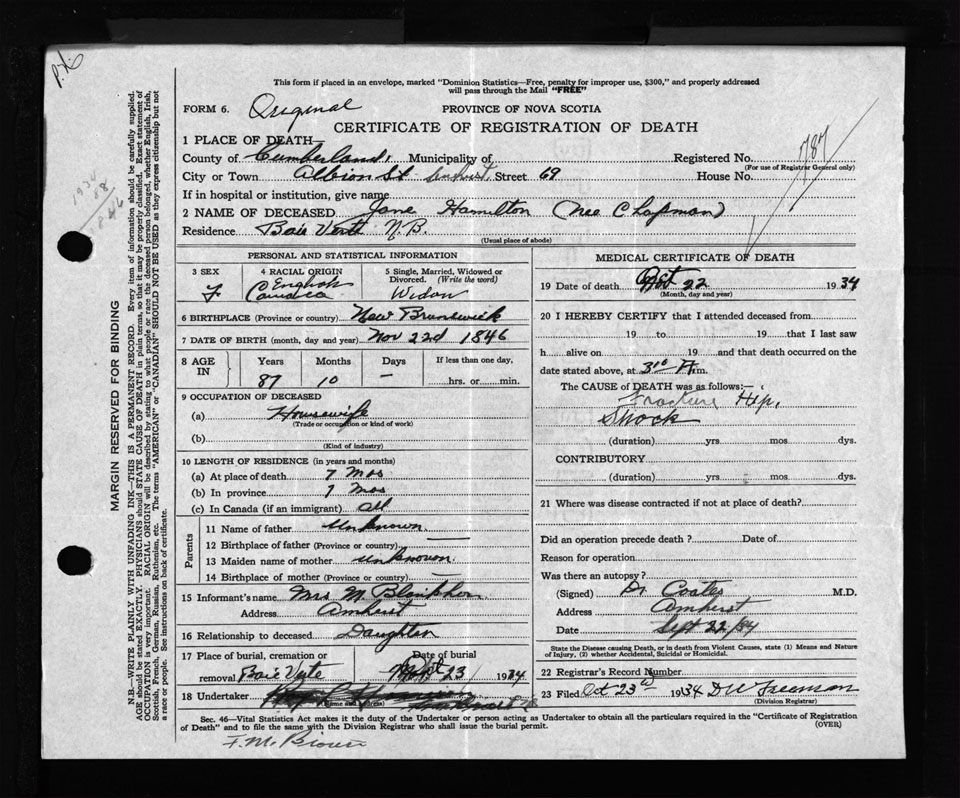 P.N.
This form if placed in an envelope, marked "Dominion Statistics—Free, penalty for improper use, $300," and properly addressed
will pass through the Mail "FREE"
FORM 6. Original PROVINCE OF NOVA SCOTIA
CERTIFICATE OF REGISTRATION OF DEATH
1 PLACE OF DEATH
County of Cumberland, Municipality of Registered No. 787
(For use of Registrar General only)
City or Town Albion St Amherst Street 69 House No.
If in hospital or institution, give name
2 NAME OF DECEASED Jane Hamilton (Nee Chapman)
Residence Baie Verte N.B.
(Usual place of abode)
PERSONAL AND STATISTICAL INFORMATION
3 SEX 4 RACIAL ORIGIN 5 Single, Married, Widowed or Divorced. (Write the word)
F English Canada Widow
6 BIRTHPLACE (Province or country) New Brunswick
7 DATE OF BIRTH (month, day and year) Nov 22d 1846
8 AGE IN Years Months Days If less than one day,
87 10 — hrs. or min.
9 OCCUPATION OF DECEASED
(a) Housewife
(Trade or occupation or kind of work)
(b)
(Kind of industry)
10 LENGTH OF RESIDENCE (in years and months)
(a) At place of death 7 Mos
(b) In province 7 Mos
(c) In Canada (if an immigrant) All
Parents
11 Name of father Unknown
12 Birthplace of father (Province or country) —
13 Maiden name of mother Unknown
14 Birthplace of mother (Province or country) —
15 Informant's name Mrs M.
Address Amherst
16 Relationship to deceased Daughter
17 Place of burial, cremation or removal Baie Verte Date of burial 23 1934
18 Undertaker
(Name and address)
MEDICAL CERTIFICATE OF DEATH
19 Date of death 22 1934
(Month, day and year)
20 I HEREBY CERTIFY that I attended deceased from
19 to 19 that I last saw
h alive on 19 and that death occurred on the
date stated above, at m.
The CAUSE of DEATH was as follows:—
Fracture Hip,
Shock
(duration) yrs mos dys.
CONTRIBUTORY
(duration) yrs mos dys.
21 Where was disease contracted if not at place of death?
Did an operation precede death? Date of
Reason for operation
Was there an autopsy?
(Signed) Dr Coates M.D.
Address Amherst
Date Sept 22/34
State the Disease causing Death, or in death from Violent Causes, state (1) Means and Nature
of Injury, (2) whether Accidental, Suicidal or Homicidal.
22 Registrar's Record Number
23 Filed Oct 23d 1934 D W Freeman
(Division Registrar)
Sec. 46—Vital Statistics Act makes it the duty of the Undertaker or person acting as Undertaker to obtain all the particulars required in the "Certificate of Registration
of Death" and to file the same with the Division Registrar who shall issue the burial permit. (OVER)
F. M. Brown
MARGIN RESERVED FOR BINDING
N.B.—WRITE PLAINLY WITH UNFADING INK—THIS IS A PERMANENT RECORD. Every item of information should be carefully supplied.
AGE should be stated EXACTLY. PHYSICIANS should STATE CAUSE OF DEATH in plain terms, so that it may be properly classified. Exact statement of
OCCUPATION is very important. RACIAL ORIGIN will be described by stating to what people or race the deceased person belonged, whether English, Irish,
Scottish, French, German, Russian, Ruthenian, etc. The terms "AMERICAN" or "CANADIAN" SHOULD NOT BE USED as they express citizenship but not
a race or people. See instructions on back of certificate.
1934
88
1846